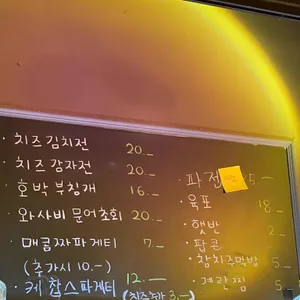 · 치즈김치전 20.-
· 치즈감자전 20.-
· 호박부침개 16.-
· 와사비 문어초회 20.-
· 매콤짜파게티 7.-
(추가시 10.-)
· 케찹스파게티 12.-
(치즈추가 3.-)
· 파전 5.-
· 육포 18.-
· 햇반 2.-
· 팝콘 5.-
· 참치주먹밥 5.-
· 계란찜 5.-